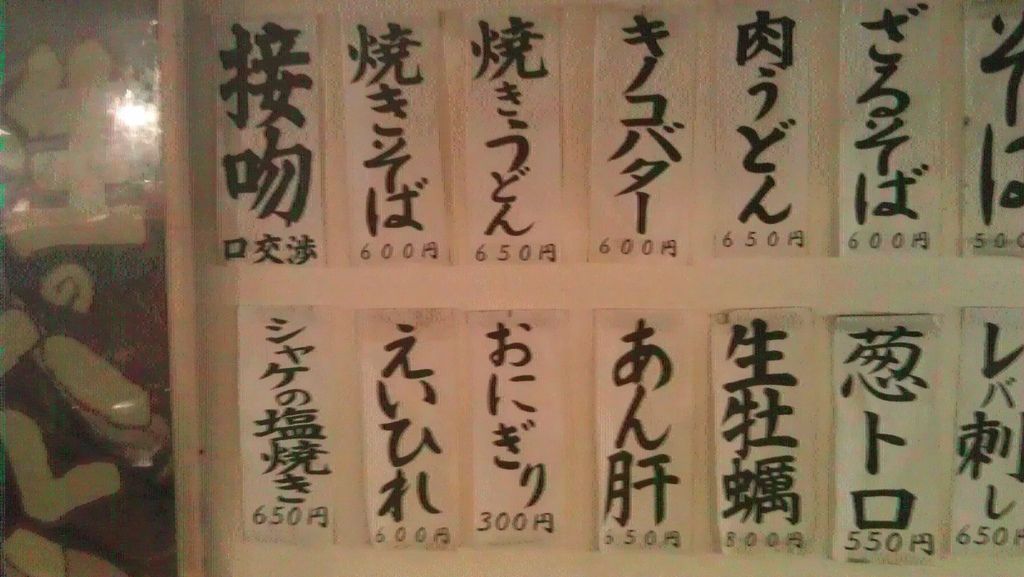 そば
500
ざるそば
600円
肉うどん
650円
キノコバター
600円
焼きうどん
650円
焼きそば
600円
接吻
口交渉
レバ刺し
650円
葱トロ
550円
生牡蠣
800円
あん肝
650円
おにぎり
300円
えいひれ
600円
シャケの塩焼き
650円